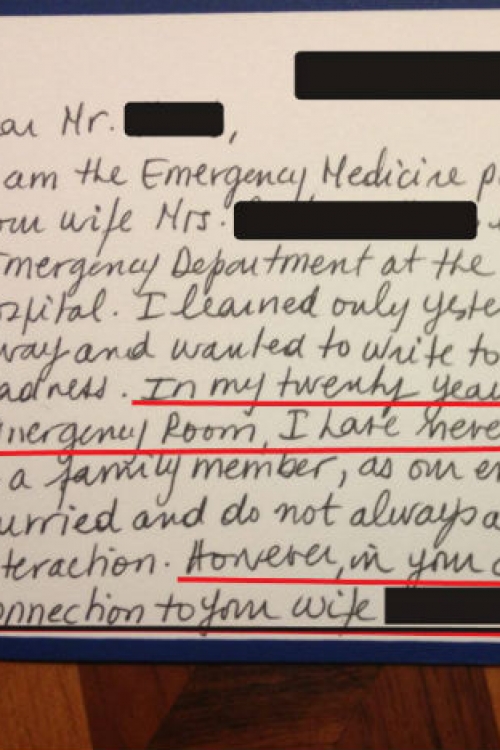 ear Mr.          ,
am the Emergency Medicine p
our wife Mrs.
Emergency Department at the
ospital. I learned only yeste
way and wanted to write to
adness. In my twenty yea
mergency Room, I have neve
a family member, as our e
urried and do not always a
teraction. However, in your c
onnection to your wife